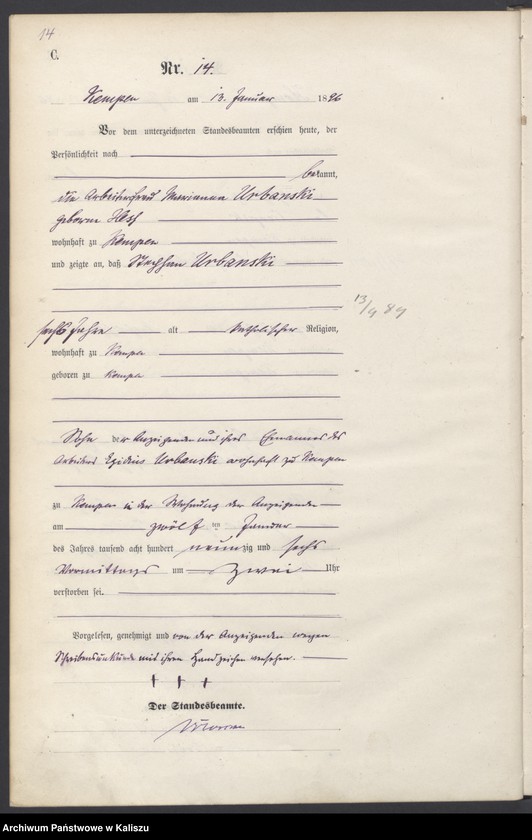 14
C.
Nr. 14.
Kempen am 13. Januar 1896
Vor dem unterzeichneten Standesbeamten erschien heute, der
Persönlichkeit nach
bekannt,
die Arbeiterfrau Marianna Urbanski
geborne
wohnhaft zu Kempen
und zeigte an, daß Stephan Urbanski
13/9 89
sechs Jahre alt katholischer Religion,
wohnhaft zu Kempen
geboren zu Kempen
Sohn der Anzeigenden und ihres Ehmannes des
Arbeiters Egidius Urbanski wohnhaft zu Kempen
zu Kempen in der Wohnung der Anzeigenden
am zwölften Januar
des Jahres tausend acht hundert neunzig und sechs
Vormittags um zwei Uhr
verstorben sei.
Vorgelesen, genehmigt und von der Anzeigenden wegen
Schreibensunkunde mit ihren Handzeichen versehen.
† † †
Der Standesbeamte.
Archiwum Państwowe w Kaliszu